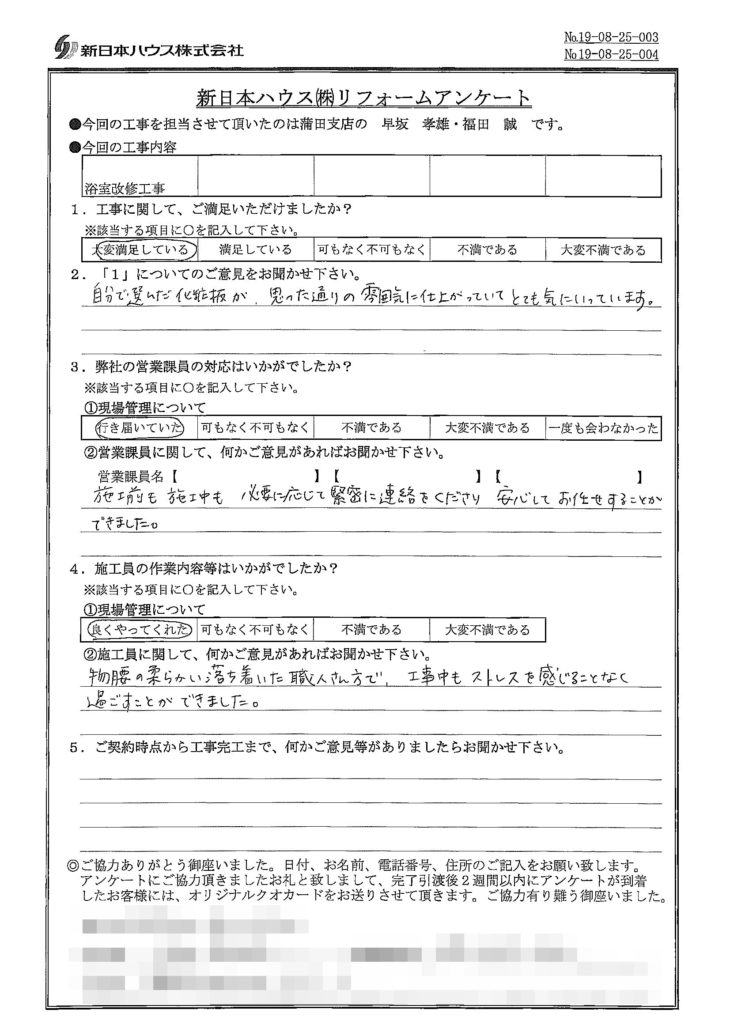 新日本ハウス株式会社
№19-08-25-003
№19-08-25-004
新日本ハウス㈱リフォームアンケート
●今回の工事を担当させて頂いたのは蒲田支店の 早坂 孝雄・福田 誠 です。
●今回の工事内容
浴室改修工事
1．工事に関して、ご満足いただけましたか？
※該当する項目に○を記入して下さい。
大変満足している 満足している 可もなく不可もなく 不満である 大変不満である
2．「1」についてのご意見をお聞かせ下さい。
自分で選んだ化粧板が、思った通りの雰囲気に仕上がっていてとても気にいっています。
3．弊社の営業課員の対応はいかがでしたか？
※該当する項目に○を記入して下さい。
①現場管理について
行き届いていた 可もなく不可もなく 不満である 大変不満である 一度も会わなかった
②営業課員に関して、何かご意見があればお聞かせ下さい。
営業課員名【 】【 】【 】
施工前も施工中も 必要に応じて緊密に連絡をくださり 安心してお任せすることが
できました。
4．施工員の作業内容等はいかがでしたか？
※該当する項目に○を記入して下さい。
①現場管理について
良くやってくれた 可もなく不可もなく 不満である 大変不満である
②施工員に関して、何かご意見があればお聞かせ下さい。
物腰の柔らかい落ち着いた職人さん方で、工事中もストレスを感じることなく
過ごすことができました。
5．ご契約時点から工事完工まで、何かご意見等がありましたらお聞かせ下さい。
◎ご協力ありがとう御座いました。日付、お名前、電話番号、住所のご記入をお願い致します。
アンケートにご協力頂きましたお礼と致しまして、完了引渡後2週間以内にアンケートが到着
したお客様には、オリジナルクオカードをお送りさせて頂きます。ご協力有り難う御座いました。